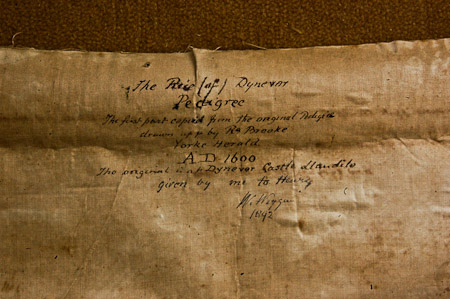 The Rice (of) Dynevor
Pedigree
The first part copied from the original Pedigree
drawn up by Ra Brooke
Yorke Herald
A.D. 1600
The original is at Dynevor Castle Llandilo
given by me to Henry
1892